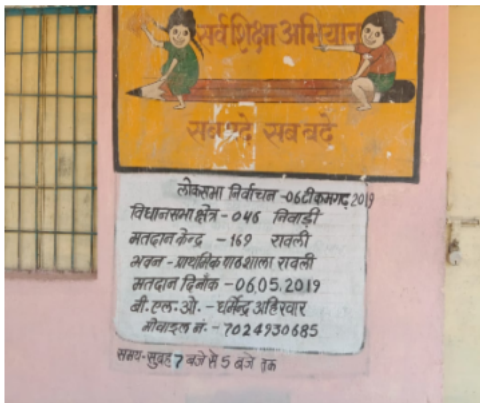 सर्व शिक्षा अभियान
सब पढे सब बढे
लोकसभा निर्वाचन -06टीकमगढ़ 2019
विधानसभा क्षेत्र - 046 निवाड़ी
मतदान केन्द्र - 169 रावली
भवन - प्राथमिक पाठशाला रावली
मतदान दिनाँक -06.05.2019
बी.एल.ओ. - धर्मेन्द्र अहिरवार
मोबाइल नं. - 7024930685
समय-सुबह 7 बजे से 5 बजे तक